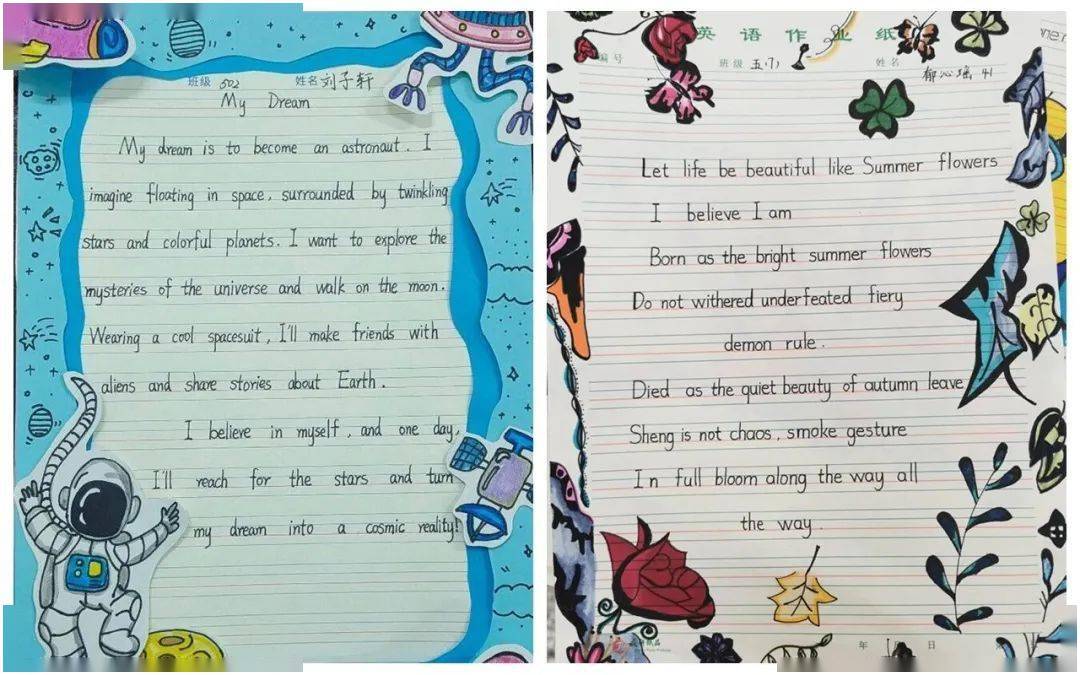 班级 502 姓名 刘子轩
My Dream
My dream is to become an astronaut. I
imagine floating in space, surrounded by twinkling
stars and colorful planets. I want to explore the
mysteries of the universe and walk on the moon.
Wearing a cool spacesuit, I'll make friends with
aliens and share stories about Earth.
I believe in myself, and one day,
I'll reach for the stars and turn
my dream into a cosmic reality!
英语作业纸
编号 班级 五(7) 姓名 郁沁瑶 41
Let life be beautiful like Summer flowers
I believe I am
Born as the bright summer flowers
Do not withered underfeated fiery
demon rule.
Died as the quiet beauty of autumn leave
Sheng is not chaos, smoke gesture
In full bloom along the way all
the way.
年 日